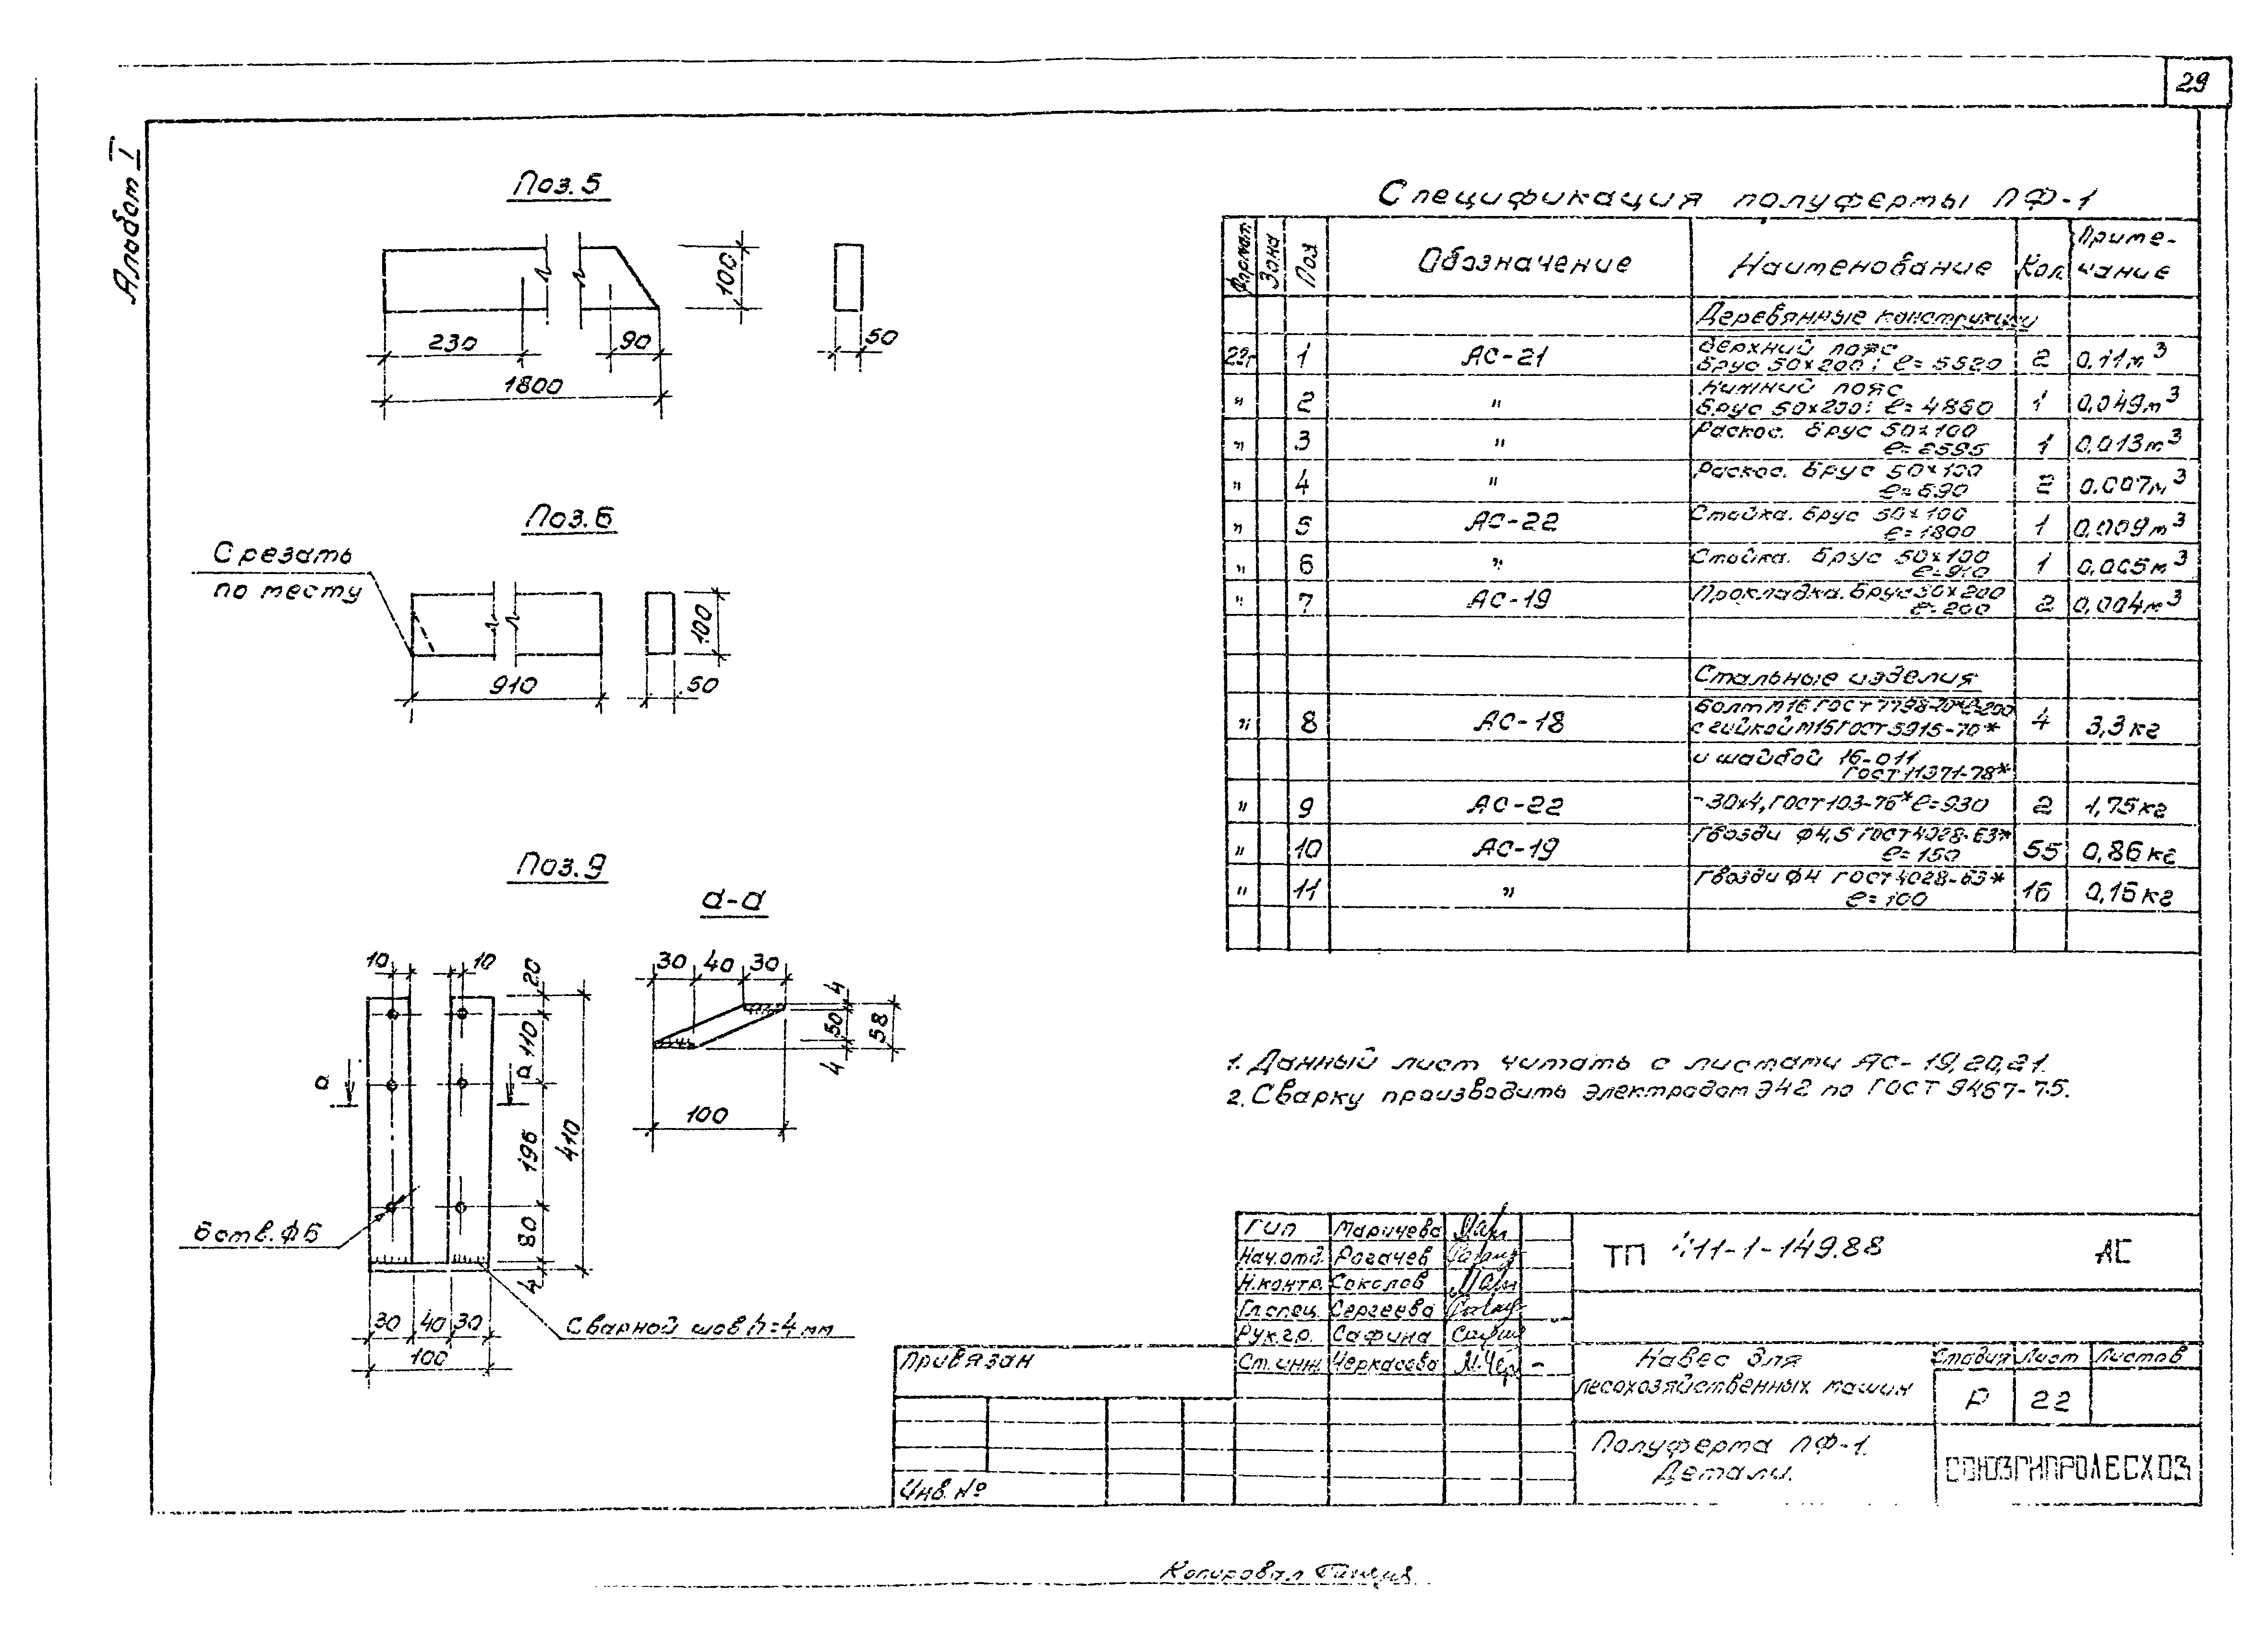 29
Альбом I
Поз. 5
230
90
1800
100
50
Поз. 6
Срезать
по месту
910
50
100
Поз. 9
а-а
10
10
20
110
196
80
4
410
а
а
6 отв. ф6
30 40 30
100
Сварной шов h=4мм
30 40 30
4
50
4
58
100
Спецификация полуфермы ПФ-1
Формат Зона Поз Обозначение Наименование Кол. Приме-
чание
Деревянные конструкции
22г 1 АС-21 Верхний пояс
Брус 50×200; ℓ=5520 2 0,11м³
" 2 " Нижний пояс
Брус 50×200; ℓ=4860 1 0,049м³
" 3 " Раскос. Брус 50×100
ℓ=2595 1 0,013м³
" 4 " Раскос. Брус 50×100
ℓ=690 2 0.007м³
" 5 АС-22 Стойка. Брус 50×100
ℓ=1800 1 0,009м³
" 6 " Стойка. Брус 50×100
ℓ=910 1 0,005м³
" 7 АС-19 Прокладка. Брус 50×200
ℓ=200 2 0,004м³
Стальные изделия
" 8 АС-18 Болт М16 ГОСТ 7798-70* ℓ=200
с гайкой М16 ГОСТ 5915-70* 4 3,3кг
и шайбой 16-011
ГОСТ 11371-78*
" 9 АС-22 -30×4, ГОСТ 103-76* ℓ=930 2 1,75кг
" 10 АС-19 Гвозди ф4,5 ГОСТ 4028-63*
ℓ=150 55 0,86кг
" 11 " Гвозди ф4 ГОСТ 4028-63*
ℓ=100 16 0,16кг
1. Данный лист читать с листами АС-19,20,21.
2. Сварку производить электродом Э42 по ГОСТ 9467-75.
ГИП Маричева
Нач.отд. Рогачев
Н.контр. Соколов
Гл.спец. Сергеева
Рук.гр. Сафина
Ст.инж. Черкасова
ТП 411-1-149.88 АС
Навес для
лесохозяйственных машин
Стадия Лист Листов
Р 22
Полуферма ПФ-1.
Детали.
СОЮЗГИПРОЛЕСХОЗ
Привязан
Инв. №
Копировал